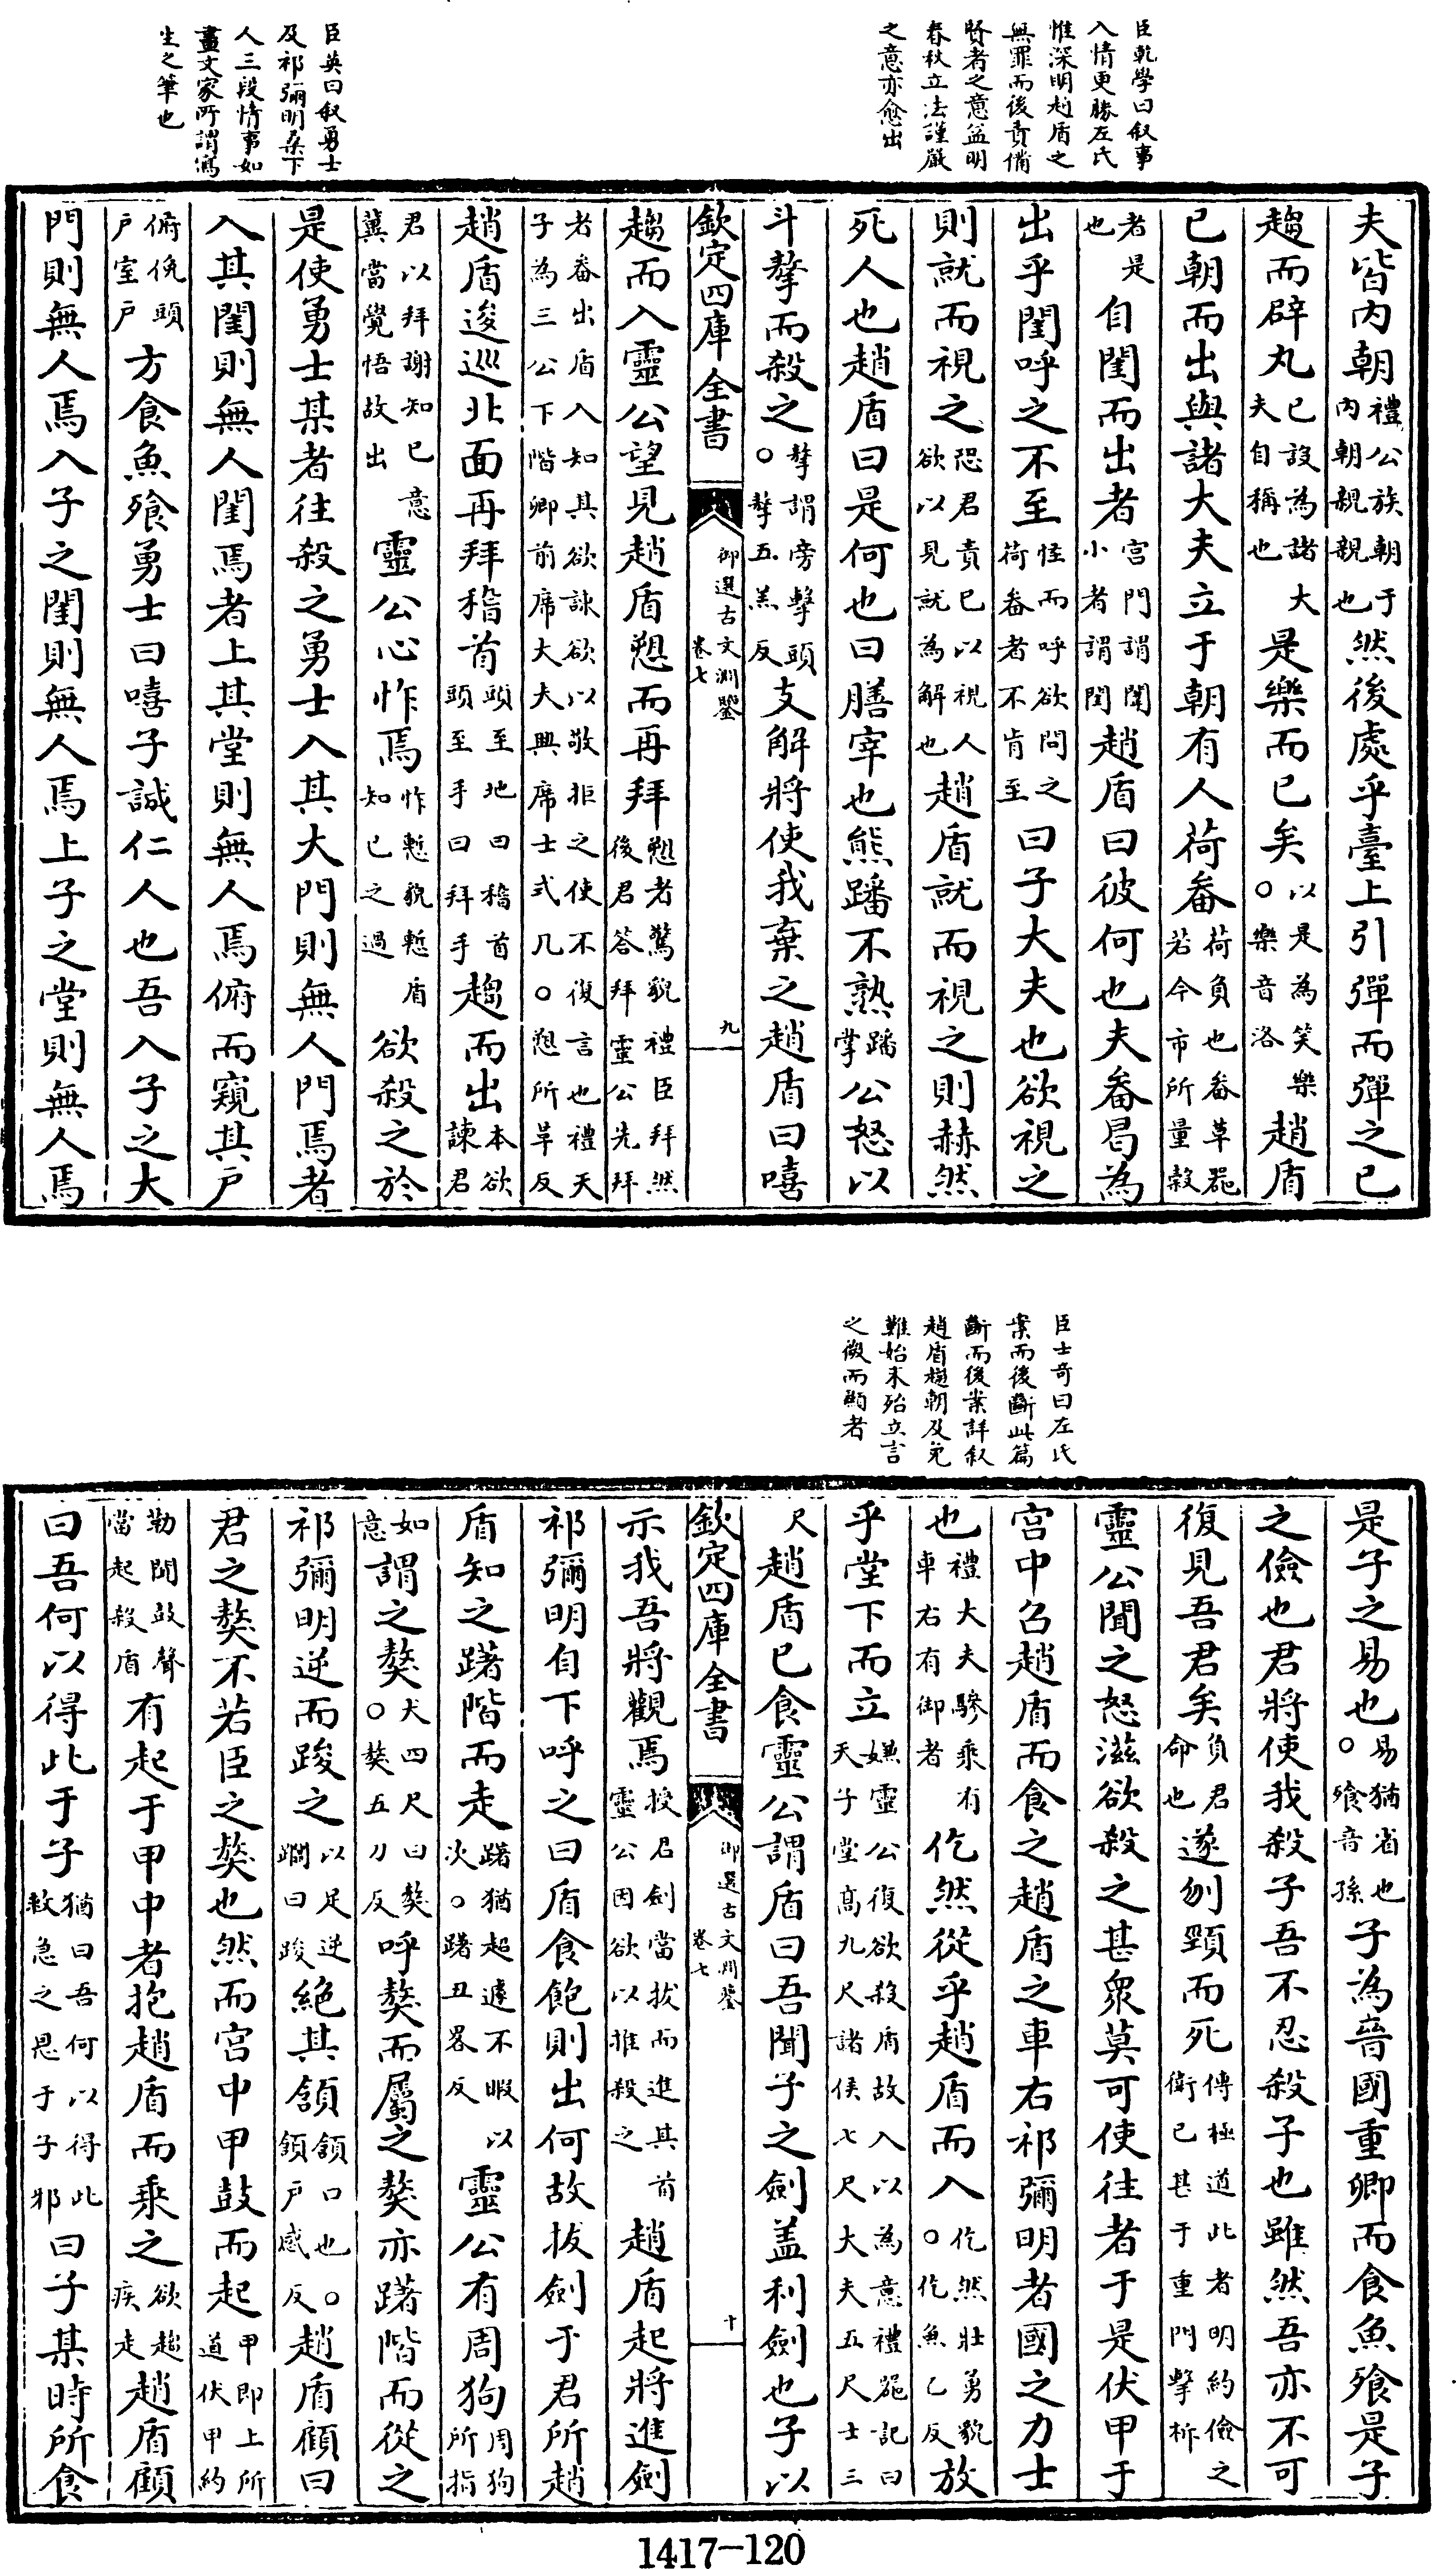 臣乾學曰叙事
入情更勝左氏
惟深明趙盾之
無罪而後責備
賢者之意益明
春秋立法謹嚴
之意亦愈出
臣英曰叙勇士
及祁彌明桑下
人三段情事如
畫文家所謂寫
生之筆也
夫皆内朝禮公族朝于内朝親親也然後處乎臺上引彈而彈之已
趨而辟丸已設為諸大夫自稱也是樂而已矣以是為笑樂○樂音洛趙盾
已朝而出與諸大夫立于朝有人荷畚荷負也畚草器若今市所量穀
者是也自閨而出者宫門謂闈小者謂閨趙盾曰彼何也夫畚曷為
出乎閨呼之不至怪而呼欲問之荷畚者不肯至曰子大夫也欲視之
則就而視之恐君責已以視人欲以見就為解也趙盾就而視之則赫然
死人也趙盾曰是何也曰膳宰也熊蹯不熟蹯掌公怒以
斗摮而殺之摮謂旁擊頭○摮五羔反支解將使我棄之趙盾曰嘻
欽定四庫全書 御選古文淵鑒 卷七 九
趨而入靈公望見趙盾愬而再拜愬者驚貌禮臣拜然後君答拜靈公先拜
者畚出盾入知其欲諫欲以敬拒之使不復言也禮天子為三公下階卿前席大夫興席士式几○愬所革反
趙盾逡巡北面再拜稽首頭至地曰稽首頭至手曰拜手趨而出本欲諫君
君以拜謝知已意冀當覺悟故出靈公心怍焉怍慙貌慙盾知已之過欲殺之於
是使勇士某者往殺之勇士入其大門則無人門焉者
入其閨則無人閨焉者上其堂則無人焉俯而窺其戶
俯俛頭戶室戶方食魚飱勇士曰嘻子誠仁人也吾入子之大
門則無人焉入子之閨則無人焉上子之堂則無人焉
臣士奇曰左氏
案而後斷此篇
斷而後案詳叙
趙盾趨朝及免
難始末殆立言
之微而顯者
是子之易也易猶省也○飱音孫子為晉國重卿而食魚飱是子
之儉也君將使我殺子吾不忍殺子也雖然吾亦不可
復見吾君矣負君命也遂刎頸而死傳極道此者明約儉之衛已甚于重門擊柝
靈公聞之怒滋欲殺之甚衆莫可使往者于是伏甲于
宫中召趙盾而食之趙盾之車右祁彌明者國之力士
也禮大夫驂乘有車右有御者仡然從乎趙盾而入仡然壯勇貌○仡魚乙反放
乎堂下而立嫌靈公復欲殺盾故入以為意禮器記曰天子堂高九尺諸侯七尺大夫五尺士三
尺趙盾已食靈公謂盾曰吾聞子之劍盖利劍也子以
欽定四庫全書 御選古文淵鑒 卷七 十
示我吾將觀焉授君劍當拔而進其首靈公因欲以推殺之趙盾起將進劍
祁彌明自下呼之曰盾食飽則出何故拔劍于君所趙
盾知之躇階而走躇猶超遽不暇以次○躇丑畧反靈公有周狗周狗所指
如意謂之獒犬四尺曰獒○獒五刀反呼獒而屬之獒亦躇階而從之
祁彌明逆而踆之以足逆蹋曰踆絶其頷頷口也○頷戶感反趙盾顧曰
君之獒不若臣之獒也然而宫中甲鼓而起甲即上所道伏甲約
勒聞鼓聲當起殺盾有起于甲中者抱趙盾而乘之欲趨疾走趙盾顧
曰吾何以得此于子猶曰吾何以得此救急之恩于子邪曰子某時所食
1417-120